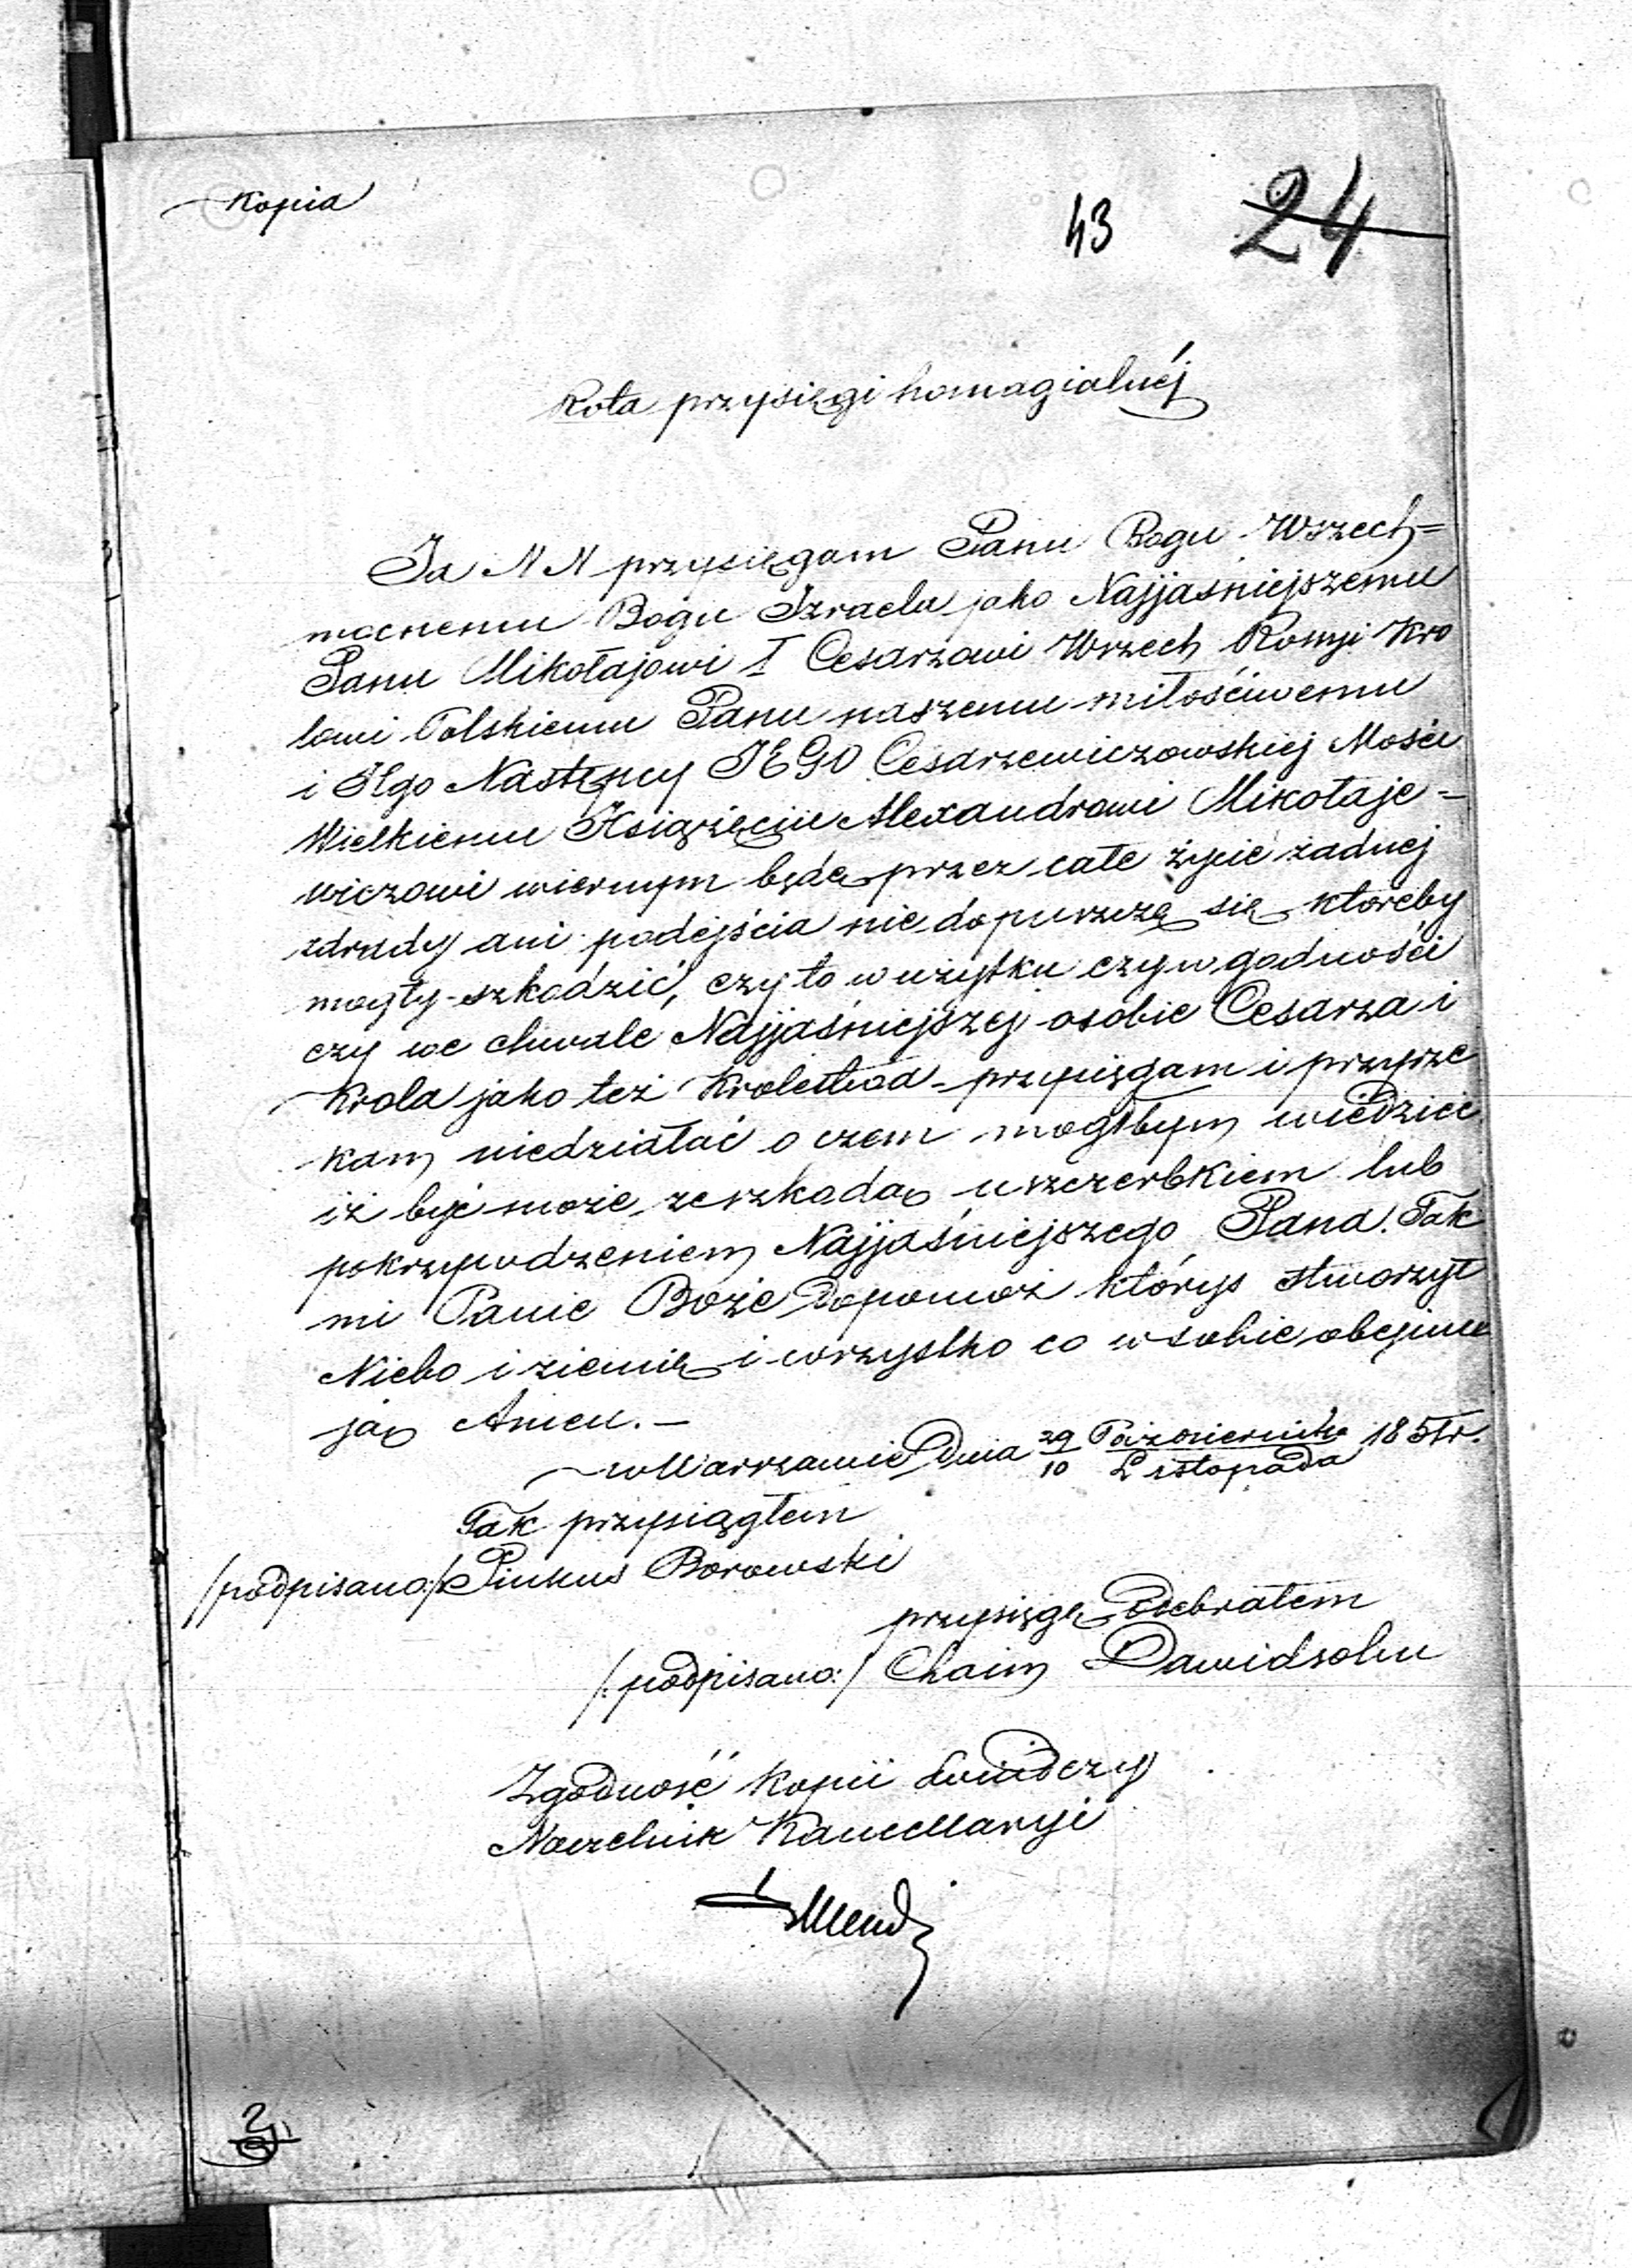 Kopia
43 24
Rota przysięgi homagialnéj
Ja N N przysięgam Panu Bogu Wszech=
mocnemu Bogu Izraela jako Najjaśniejszemu
Panu Mikołajowi I Cesarzowi Wszech Rossyi Kro
lowi Polskiemu Panu naszemu miłościwemu
i JEgo Następcy JEGO Cesarzewiczowskiej Mości
Wielkiemu Xsiążęciu Alexandrowi Mikołaje=
wiczowi wiernym będę przez całe życie żadnej
zdrady ani podejścia nie dopuszczę się któreby
mogły szkodzić, czy to w użytku czy w godności
czy we chwale Najjaśniejszej osobie Cesarza i
Krola jako też Krolestwa przysięgam i przyrze
kam niedziałać o czem mogłbym wiedzieć
iż być może ze szkodą uszczerbkiem lub
pokrzywdzeniem Najjaśniejszego Pana. Tak
mi Panie Boże Dopomoż któryś stworzył
Niebo i ziemię i wszystko co w sobie obejmu
ją Amen. –
w Warszawie Dnia 29/10 Października/Listopada 185 r.
Tak przysiągłem
/podpisano:/ Pinkus Borowski
przysięgę Odebrałem
/:podpisano:/ Chaim Dawidsohn
Zgodność kopii świadczy
Naczelnik Kancellaryi
2